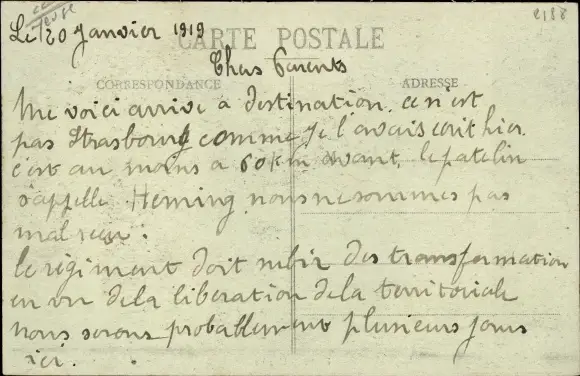 Le 20 Janvier 1919
CARTE POSTALE
Chers Parents
CORRESPONDANCE
ADRESSE
Me voici arrive a destination. ce n'est
pas Strasbourg comme je l'avais ecrit hier
c'est au moins a 60 km avant, le patelin
s'appelle Heming nous ne sommes pas
mal reçu :
le régiment doit subir des transformation
en vu de la liberation de la territoriale
nous serons probablement plusieurs jours
ici.